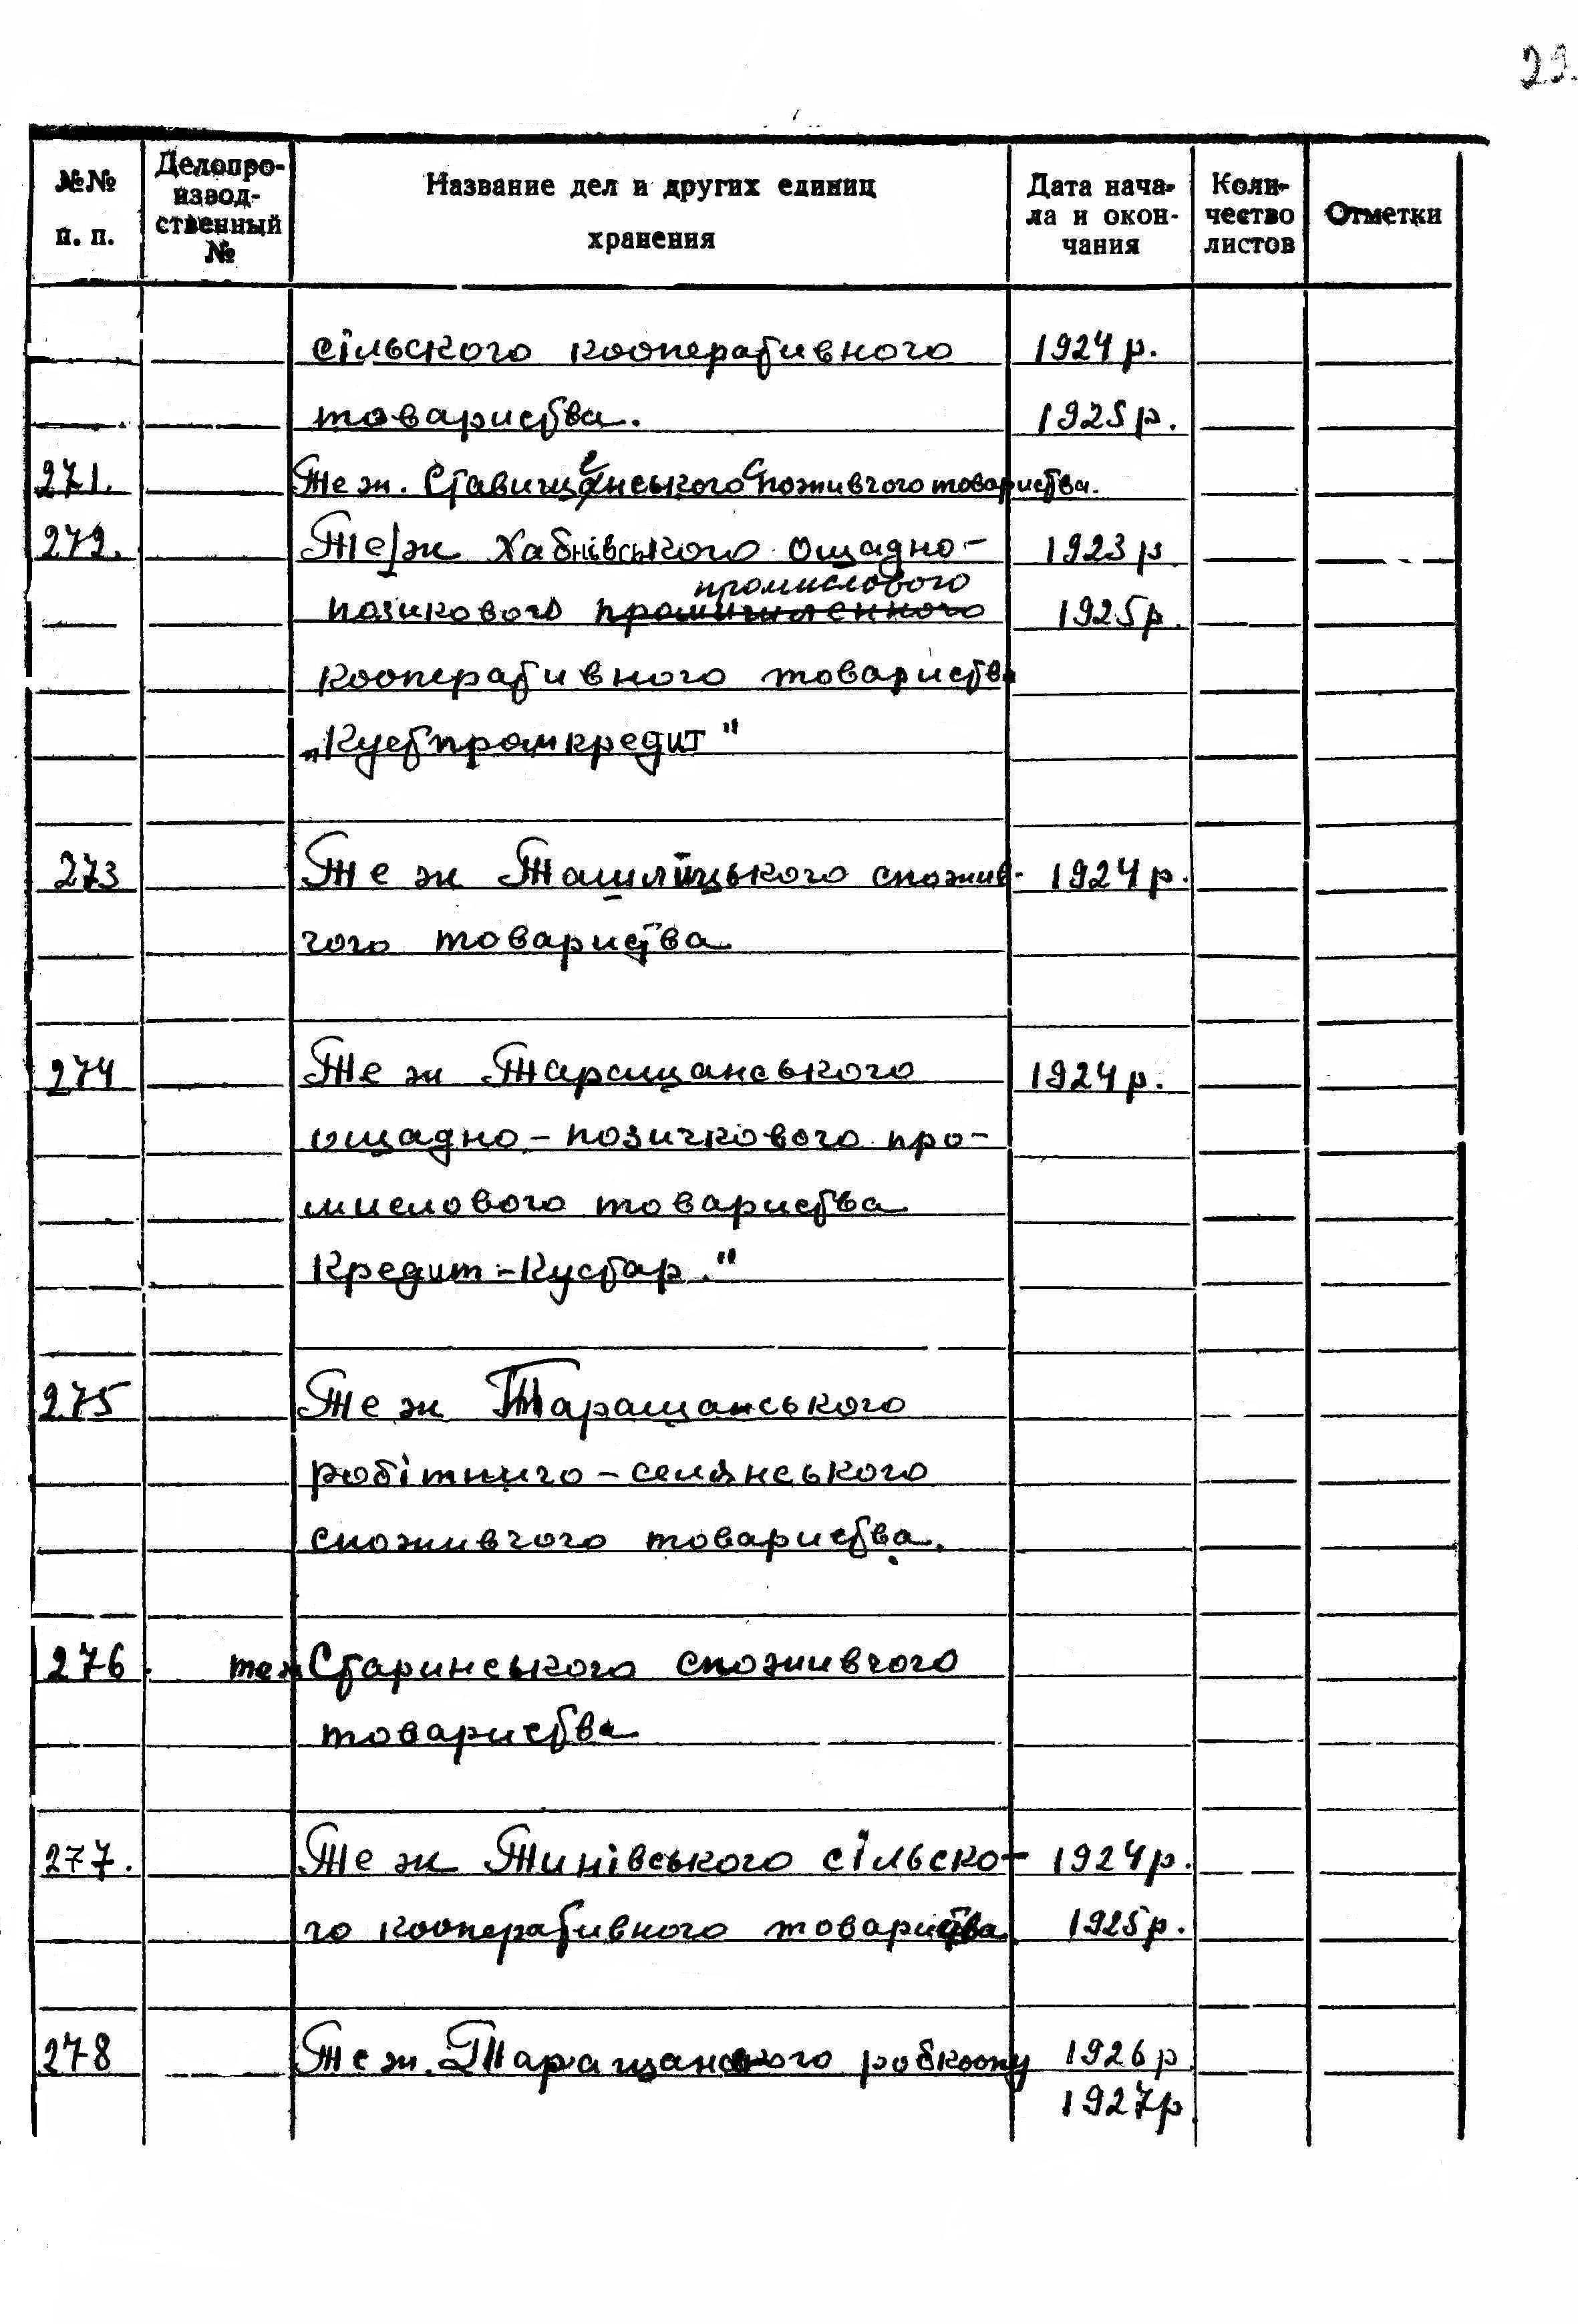 29.
№№ п. п.
Делопро-
извод-
ственный
№
Название дел и других единиц
хранения
Дата нача-
ла и окон-
чания
Коли-
чество
листов
Отметки
сільского кооперативного 1924 р.
товариства. 1925 р.
271. Теж. Ставищенського споживчого товариства.
272. Теж Хабнівського ощадно- 1923 р
промислового
позикового промишленного 1925р.
кооперативного товариства
„Кустпромкредит"
273 Теж Ташлицького спожив- 1924 р.
чого товариства
274 Теж Таращанського 1924 р.
ощадно-позичкового про-
мислового товариства
Кредит-Кустар."
275 Теж Таращанського
робітничо-селянського
споживчого товариства.
276. теж Старинського споживчого
товариства
277. Теж Тинівського сільско- 1924р.
го кооперативного товариства 1925р.
278 Теж. Таращанського робкоопу 1926 р
1927р